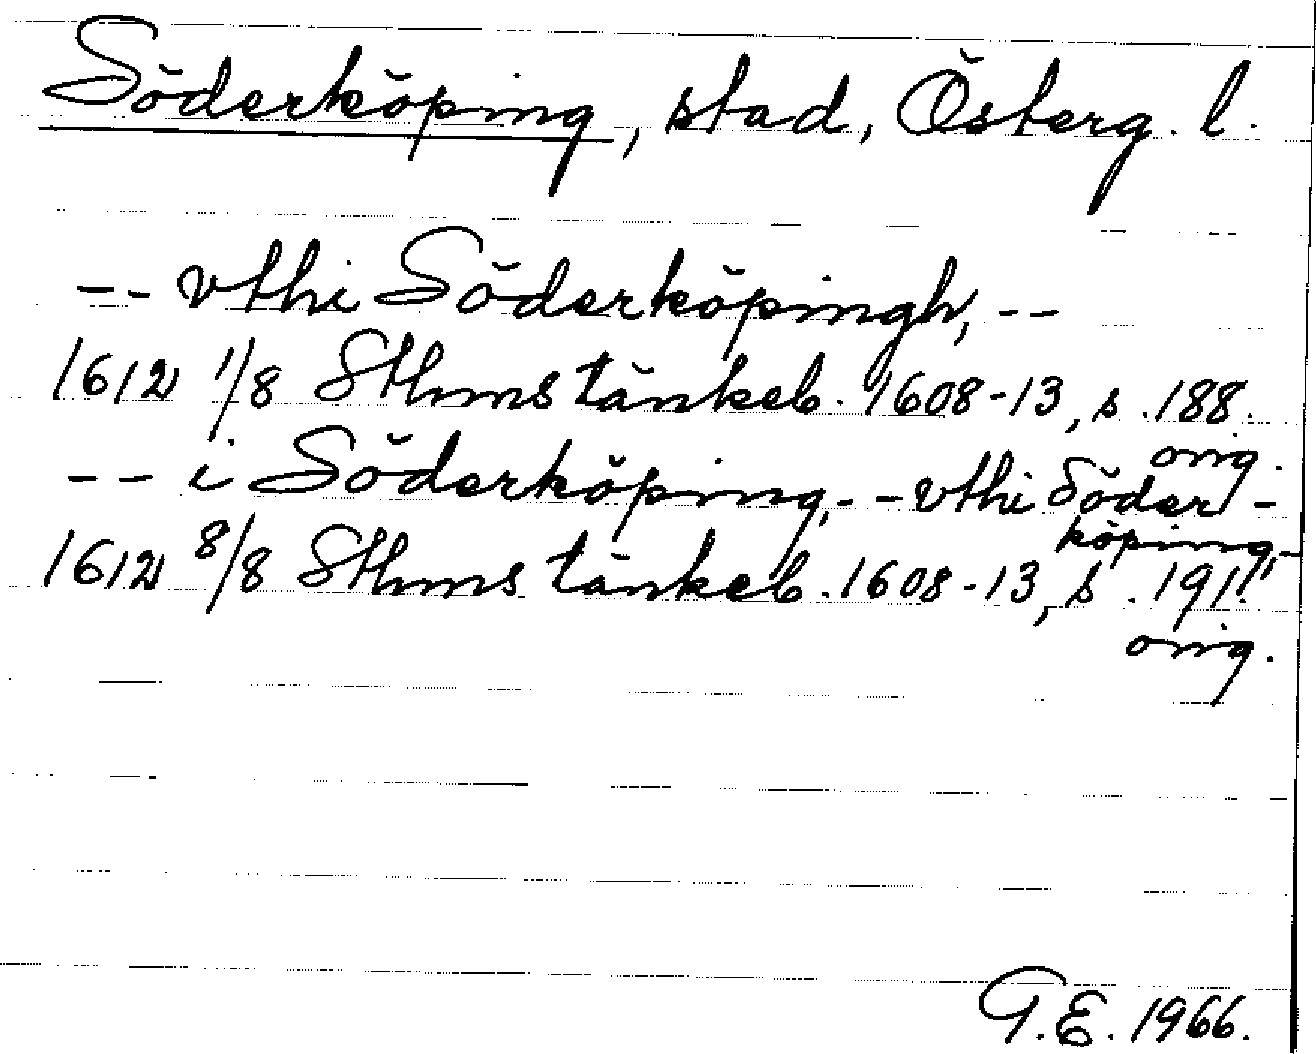 Söderköping, stad, Österg. l.
-- vthi Söderköpingh, --
1612 1/8 Sthms tänkeb. 1608-13, s. 188.
orig.
-- i Söderköping, -- vthi Söder-
köping, -
1612 8/8 Sthms tänkeb. 1608-13, s. 191.
orig.
G.E. 1966.